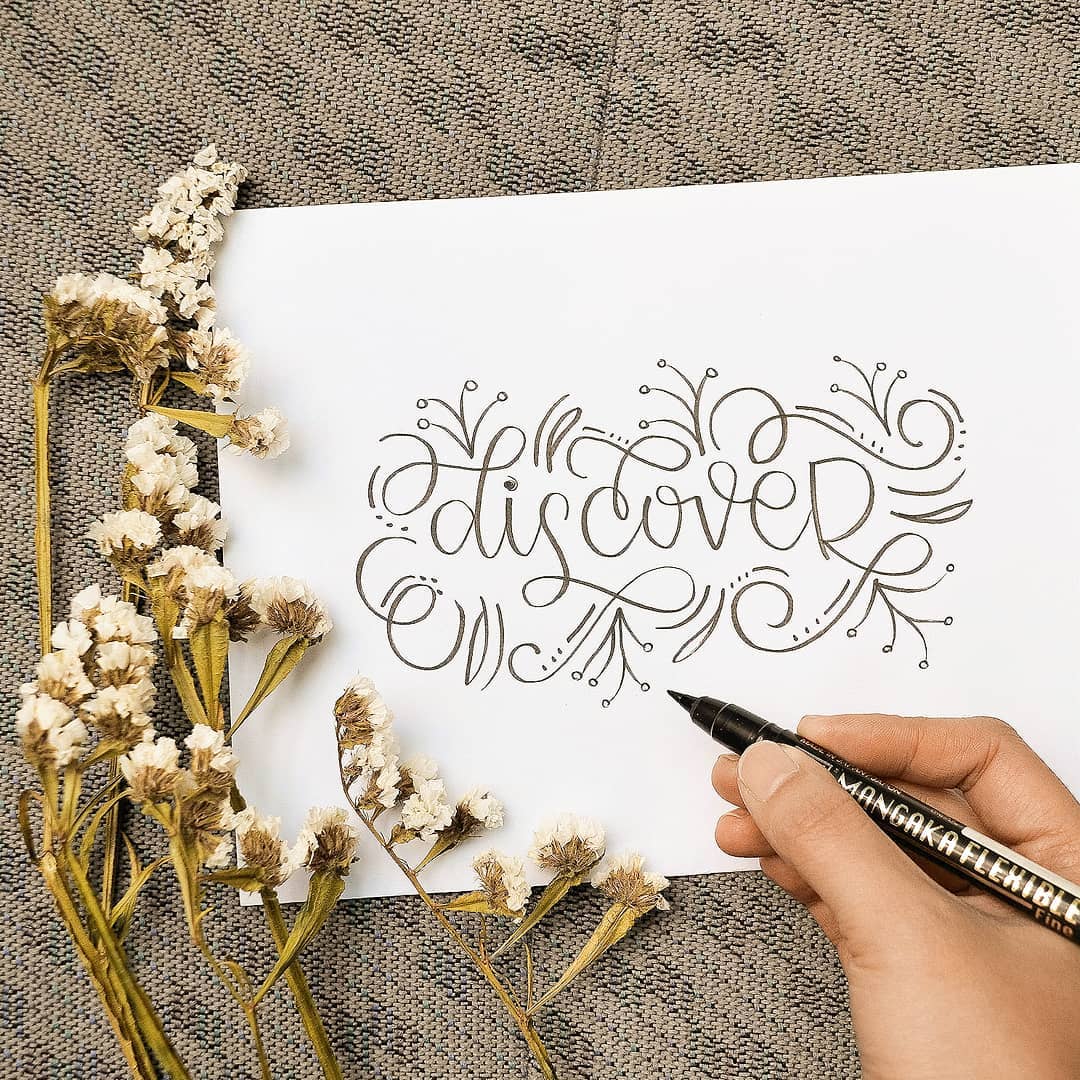 discoveR
MANGAKA FLEXIBLE
Fine